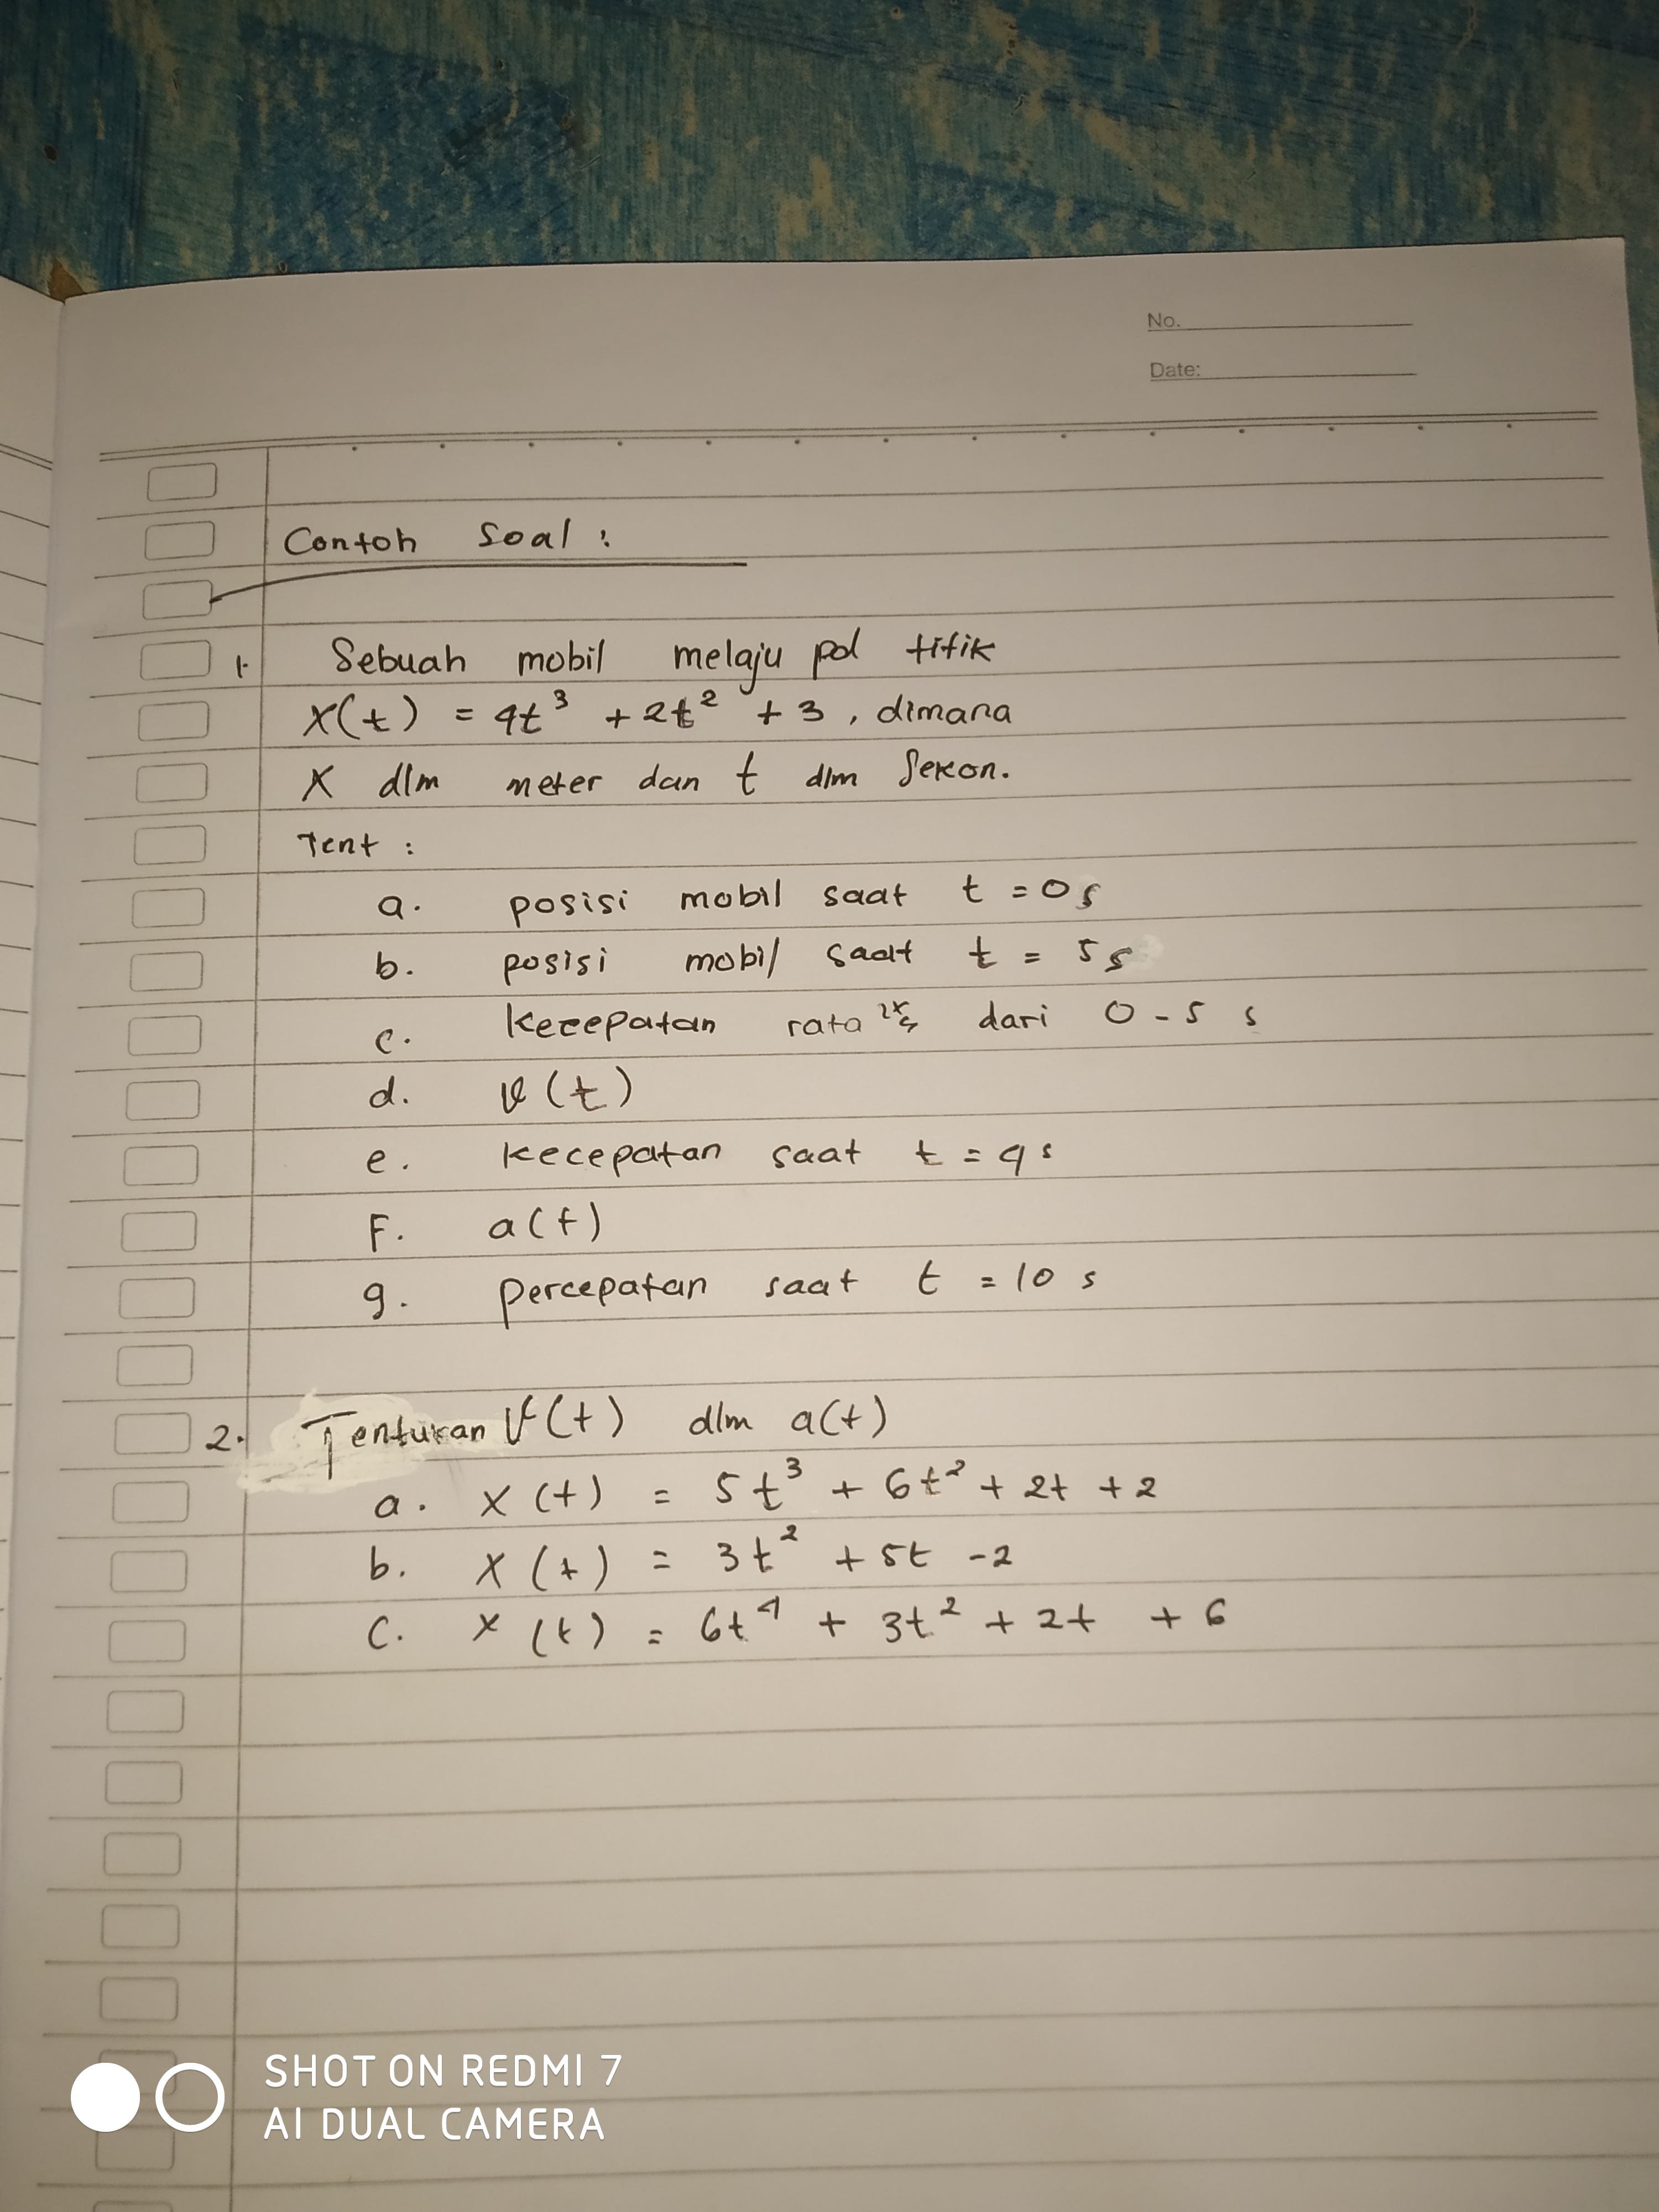 No.
Date:
Contoh Soal :
1. Sebuah mobil melaju pd titik
x(t) = 4t³ + 2t² + 3, dimana
X dlm meter dan t dlm sekon.
Tent :
a. posisi mobil saat t = 0 s
b. posisi mobil saat t = 5 s
c. kecepatan rata² dari 0 - 5 s
d. v(t)
e. kecepatan saat t = 4 s
F. a(t)
g. percepatan saat t = 10 s
2. Tentukan v(t) dlm a(t)
a. x(t) = 5t³ + 6t² + 2t + 2
b. x(t) = 3t² + 5t - 2
C. x(t) = 6t⁴ + 3t² + 2t + 6
SHOT ON REDMI 7
AI DUAL CAMERA